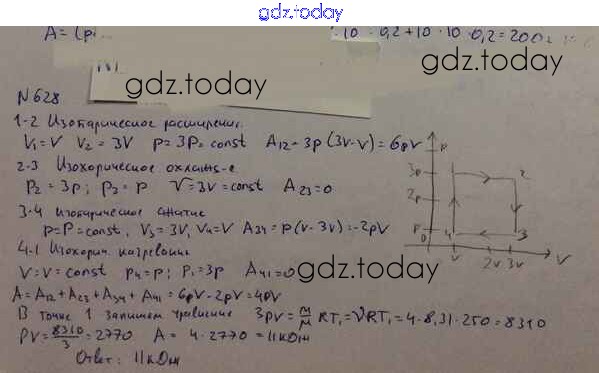 gdz.today
A = (p
10 · 0,2 + 10 · 10 · 0,2 = 200
gdz.today
gdz.today
N 628
1-2 Изобарическое расширение.
V₁ = V V₂ = 3V p = 3P = const A₁₂ = 3p (3V - V) = 6pV
2-3 Изохорическое охлажд-е
P₂ = 3p; P₃ = p V = 3V = const A₂₃ = 0
3-4 изобарическое сжатие
p = P = const, V₃ = 3V, V₄ = V A₃₄ = p (V - 3V) = -2pV
4-1 Изохорич. нагревание
V = V = const p₄ = p; P₁ = 3p A₄₁ = 0
gdz.today
A = A₁₂ + A₂₃ + A₃₄ + A₄₁ = 6pV - 2pV = 4pV
В точке 1 запишем уравнение 3pV = m/M RT₁ = νRT₁ = 4 · 8,31 · 250 = 8310
PV = 8310/3 = 2770 A = 4 · 2770 = 11 кДж
Ответ: 11 кДж
P
3p
2p
P
0
2
4
3
V
2V
3V
V